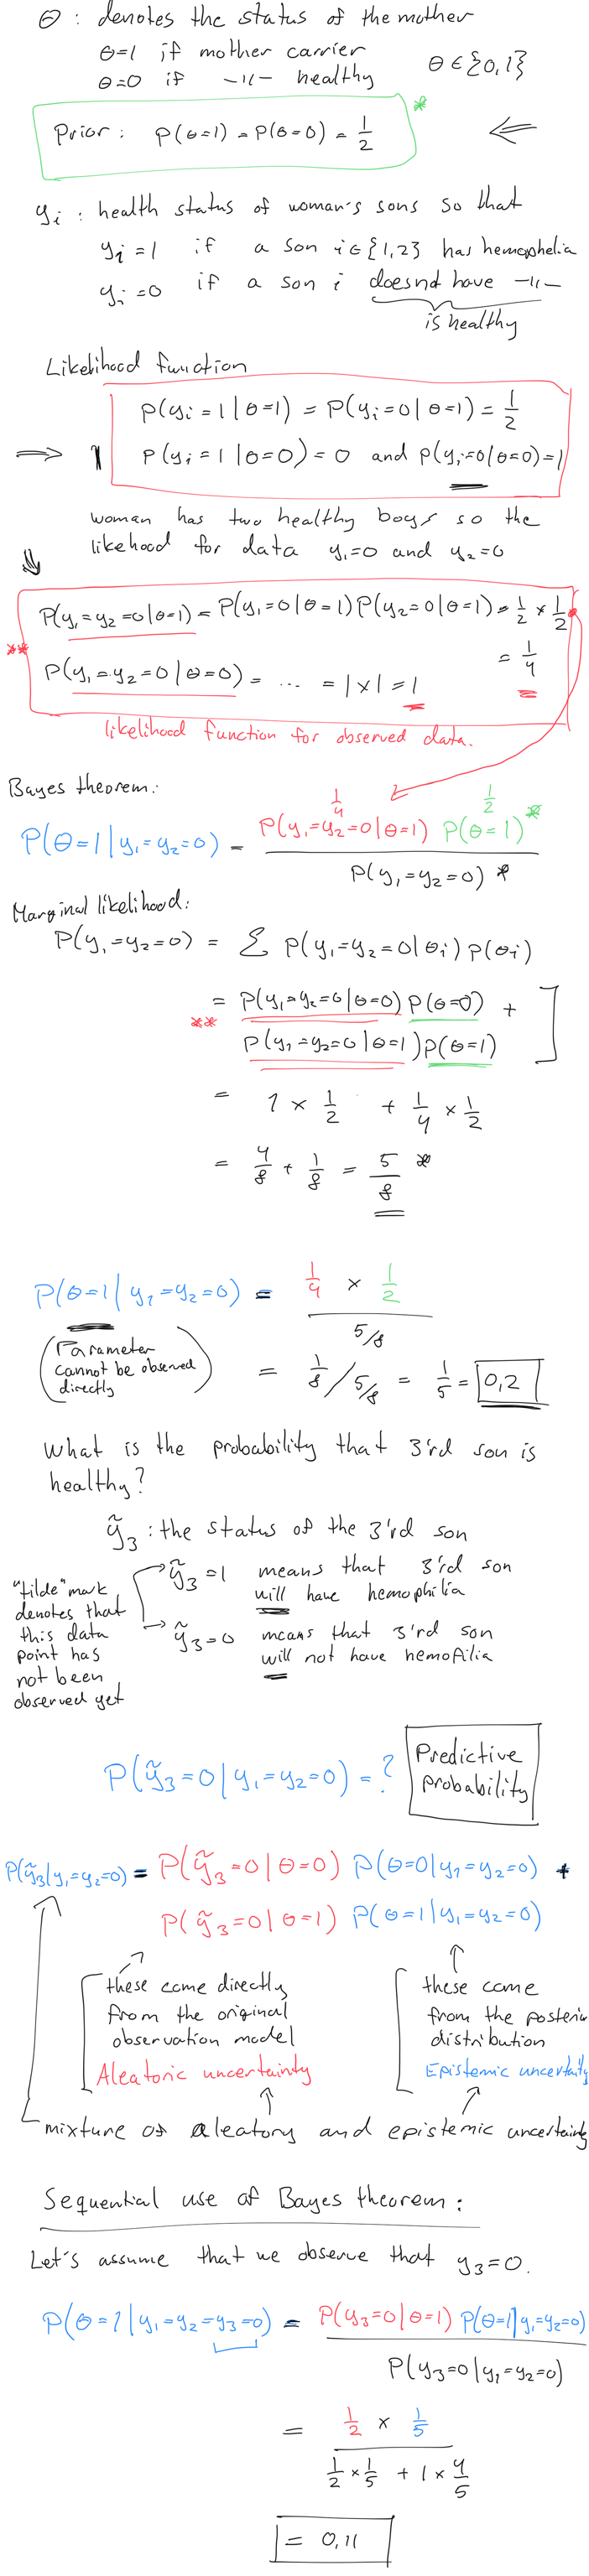 θ : denotes the status of the mother
θ=1 if mother carrier
θ=0 if -"- healthy
θ ∈ {0,1}
Prior : P(θ=1) = P(θ=0) = 1/2 *
⇐
y_i : health status of woman's sons so that
y_i = 1 if a son i∈{1,2} has hemophelia
y_i = 0 if a son i doesnt have -"-
is healthy
Likelihood function
P(y_i = 1 | θ=1) = P(y_i=0 | θ=1) = 1/2
⇒ P(y_i = 1 | θ=0) = 0 and P(y_i=0 | θ=0) = 1
woman has two healthy boys so the
likehood for data y_1=0 and y_2=0
P(y_1=y_2=0 | θ=1) = P(y_1=0 | θ=1) P(y_2=0 | θ=1) = 1/2 × 1/2
= 1/4
** P(y_1=y_2=0 | θ=0) = ... = 1×1 = 1
likelihood function for observed data.
Bayes theorem:
1/4 1/2
P(θ=1 | y_1=y_2=0) = P(y_1=y_2=0 | θ=1) P(θ=1) *
P(y_1=y_2=0) *
Marginal likelihood:
P(y_1=y_2=0) = Σ P(y_1=y_2=0 | θ_i) P(θ_i)
= P(y_1=y_2=0 | θ=0) P(θ=0) +
** P(y_1=y_2=0 | θ=1) P(θ=1)
= 1 × 1/2 + 1/4 × 1/2
= 4/8 + 1/8 = 5/8 *
P(θ=1 | y_1=y_2=0) = 1/4 × 1/2
5/8
(Parameter
cannot be observed
directly)
= 1/8 / 5/8 = 1/5 = 0,2
What is the probability that 3'rd son is
healthy?
ỹ_3 : the status of the 3'rd son
ỹ_3 = 1 means that 3'rd son
will have hemophilia
ỹ_3 = 0 means that 3'rd son
will not have hemofilia
"tilde" mark
denotes that
this data
point has
not been
observed yet
P(ỹ_3=0 | y_1=y_2=0) = ?
Predictive
probability
P(ỹ_3 | y_1=y_2=0) = P(ỹ_3=0 | θ=0) P(θ=0 | y_1=y_2=0) +
P(ỹ_3=0 | θ=1) P(θ=1 | y_1=y_2=0)
these come directly
from the original
observation model
Aleatoric uncertainty
these come
from the posterior
distribution
Epistemic uncertainty
mixture of aleatory and epistemic uncertainty
Sequential use of Bayes theorem:
Let's assume that we observe that y_3=0.
P(θ=1 | y_1=y_2=y_3=0) = P(y_3=0 | θ=1) P(θ=1 | y_1=y_2=0)
P(y_3=0 | y_1=y_2=0)
= 1/2 × 1/5
1/2 × 1/5 + 1 × 4/5
= 0,11